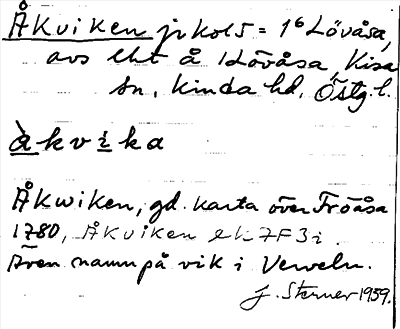 Åkviken jr kols = 1⁶ Lövåsa,
avs lht å 1 Lövåsa, Kisa
sn, Kinda hd, Östg. l.
åkvika
Åkwiken, gd. karta över Fröåsa
1780, Åkviken ek 7F3i.
Även namn på vik i Verveln.
J. Sterner 1959.